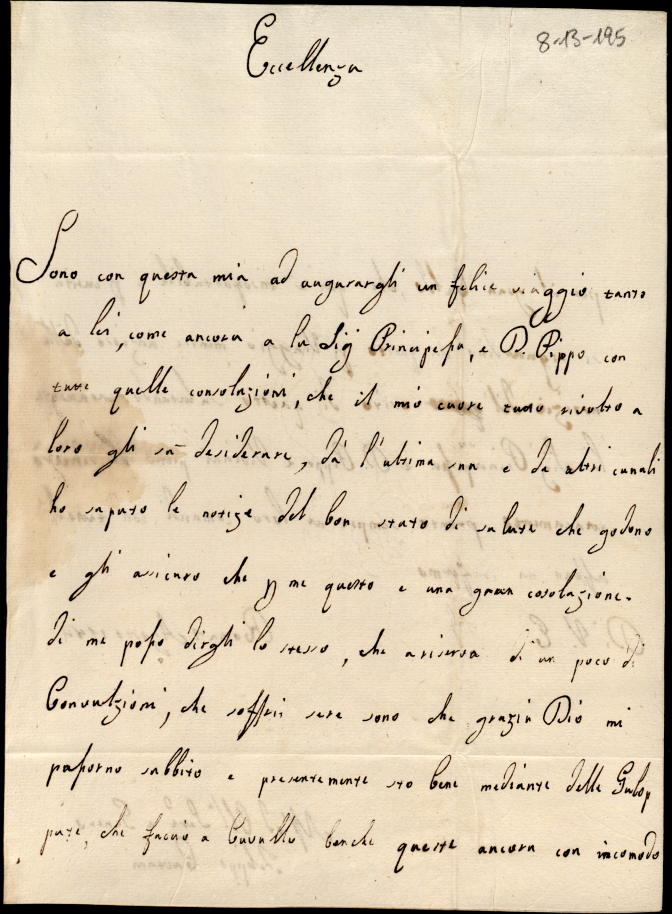 8-13-195
Eccellenza
Sono con questa mia ad augurargli un felice viaggio tanto
a lei, come ancora a la Sig Principessa, e D. Pippo con
tute quelle consolazioni, che il mio cuore tuto rivolto a
loro gli sà desiderare, dà l'ultima sua e da altri canali
ho saputo le notize del bon stato di salute che godono
e gli asicuro che p me questo e una gran cosolazione.
di me posso dirgli lo stesso, che a riserva di un poco di
Convulzioni, che soffrii sere sono che grazia Dio mi
passorno sabbito e presentemente sto bene mediante delle Galop
pate, che faccio a Cavallo benche queste ancora con incomodo